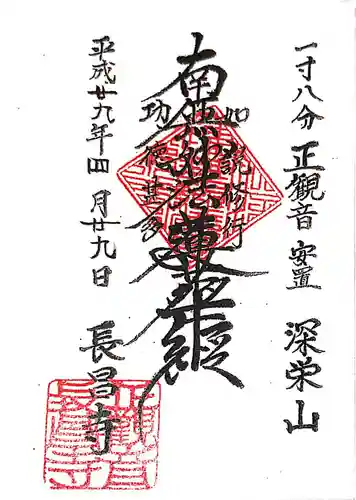 一寸八分 正觀音 安置 深栄山
如説修行
南無妙法蓮華経
功徳甚多
平成廿九年四月廿九日 長昌寺